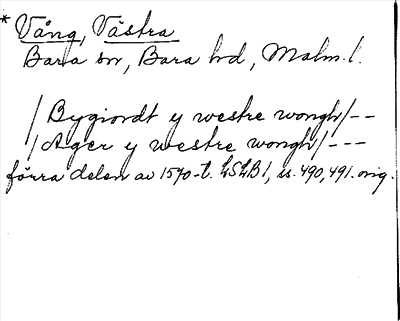 * Vång, Västra
Bara sn, Bara hd, Malm. l.
/ Bygiordt y westre wongh/--
/ Ager y westre wongh/---
förra delen av 1570-t. LSLB I, ss. 490, 491. orig.